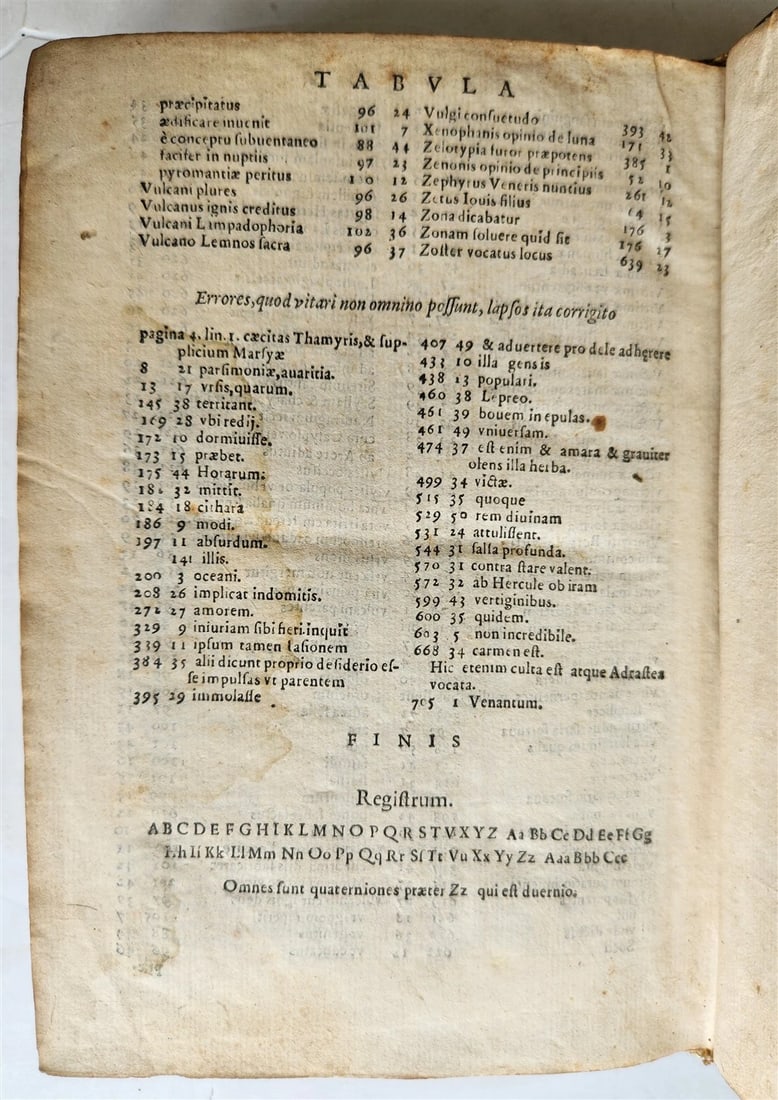 TABVLA
præcipitatus 96 24
ædificare inuenit 101 7
è conceptu subuentaneo 88 44
faciter in nuptiis 97 23
pyromantiæ peritus 12
Vulcani plures 96 26
Vulcanus ignis creditus 98 14
Vulcani Lampadophoria 102 36
Vulcano Lemnos sacra 96 37
Vulgi consuetudo 393 42
Xenophanis opinio de luna 171 33
Zelotypia furor præpotens 385 1
Zenonis opinio de principiis 52 10
Zephyrus Veneris nuntius 261 12
Zetus Iouis filius 15
Zona dicabatur 176 3
Zonam soluere quid sit 176 27
Zoster vocatus locus 639 23
Errores, quod vitari non omnino possunt, lapsos ita corrigito
pagina 4. lin. 1. cæcitas Thamyris, & sup-
plicium Marsyæ
8 21 parsimoniæ, auaritia.
13 17 vrsis, quarum.
145 38 territant.
169 28 vbi redij.
172 10 dormiuisse.
173 15 præbet.
175 44 Horarum:
32 mittit.
184 18 cithara
186 9 modi.
197 11 absurdum.
141 illis.
200 3 oceani.
208 26 implicat indomitis.
272 27 amorem.
329 9 iniuriam sibi fieri. inquit
339 11 ipsum tamen Iasionem
384 35 alii dicunt proprio desiderio es-
se impulsas vt parentem
395 29 immolasse .
407 49 & aduertere pro dele adherere
433 10 illa gensis
438 13 populari.
460 38 Lepreo.
461 39 bouem in epulas.
461 49 vniuersam.
474 37 est enim & amara & grauiter
olens illa herba.
499 34 victæ.
515 35 quoque
529 50 rem diuinam
531 24 attulissent.
544 31 salsa profunda.
570 31 contra stare valent.
572 32 ab Hercule ob iram
599 43 vertiginibus.
600 35 quidem.
603 5 non incredibile.
668 34 carmen est.
Hic etenim culta est atque Adrastea
vocata.
705 1 Venantum.
FINIS
Registrum.
A B C D E F G H I K L M N O P Q R S T V X Y Z Aa Bb Cc Dd Ee Ff Gg
Hh Ii Kk Ll Mm Nn Oo Pp Qq Rr Ss Tt Vu Xx Yy Zz Aaa Bbb Ccc
Omnes sunt quaterniones præter Zz qui est duernio.